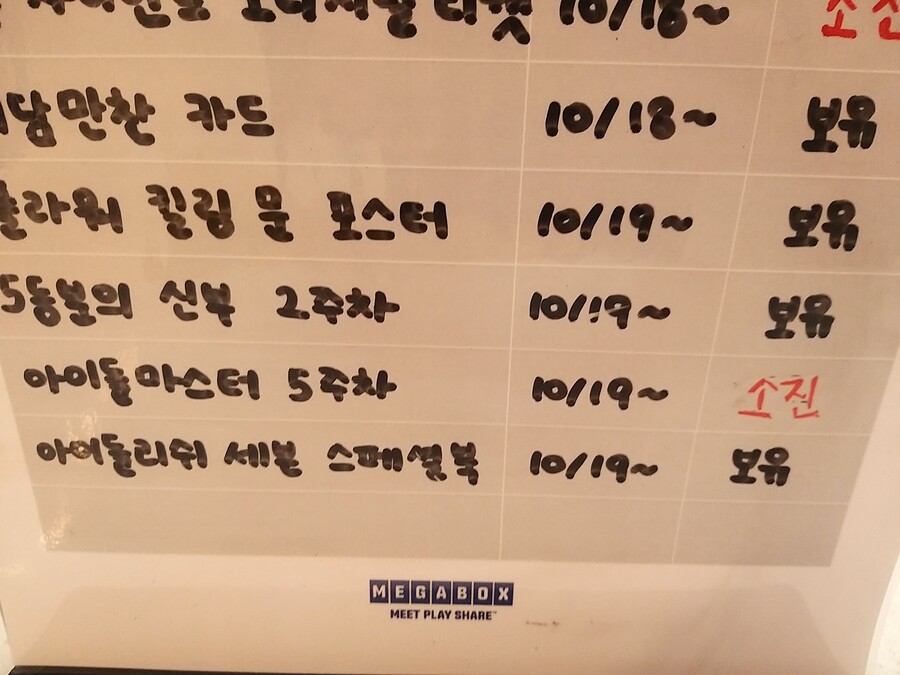 오리지널 티켓 10/18~ 소진
담만찬 카드 10/18~ 보유
플라워 킬링 문 포스터 10/19~ 보유
5등분의 신부 2주차 10/19~ 보유
아이돌마스터 5주차 10/19~ 소진
아이돌리쉬 세븐 스페셜북 10/19~ 보유
MEGABOX
MEET PLAY SHARE™